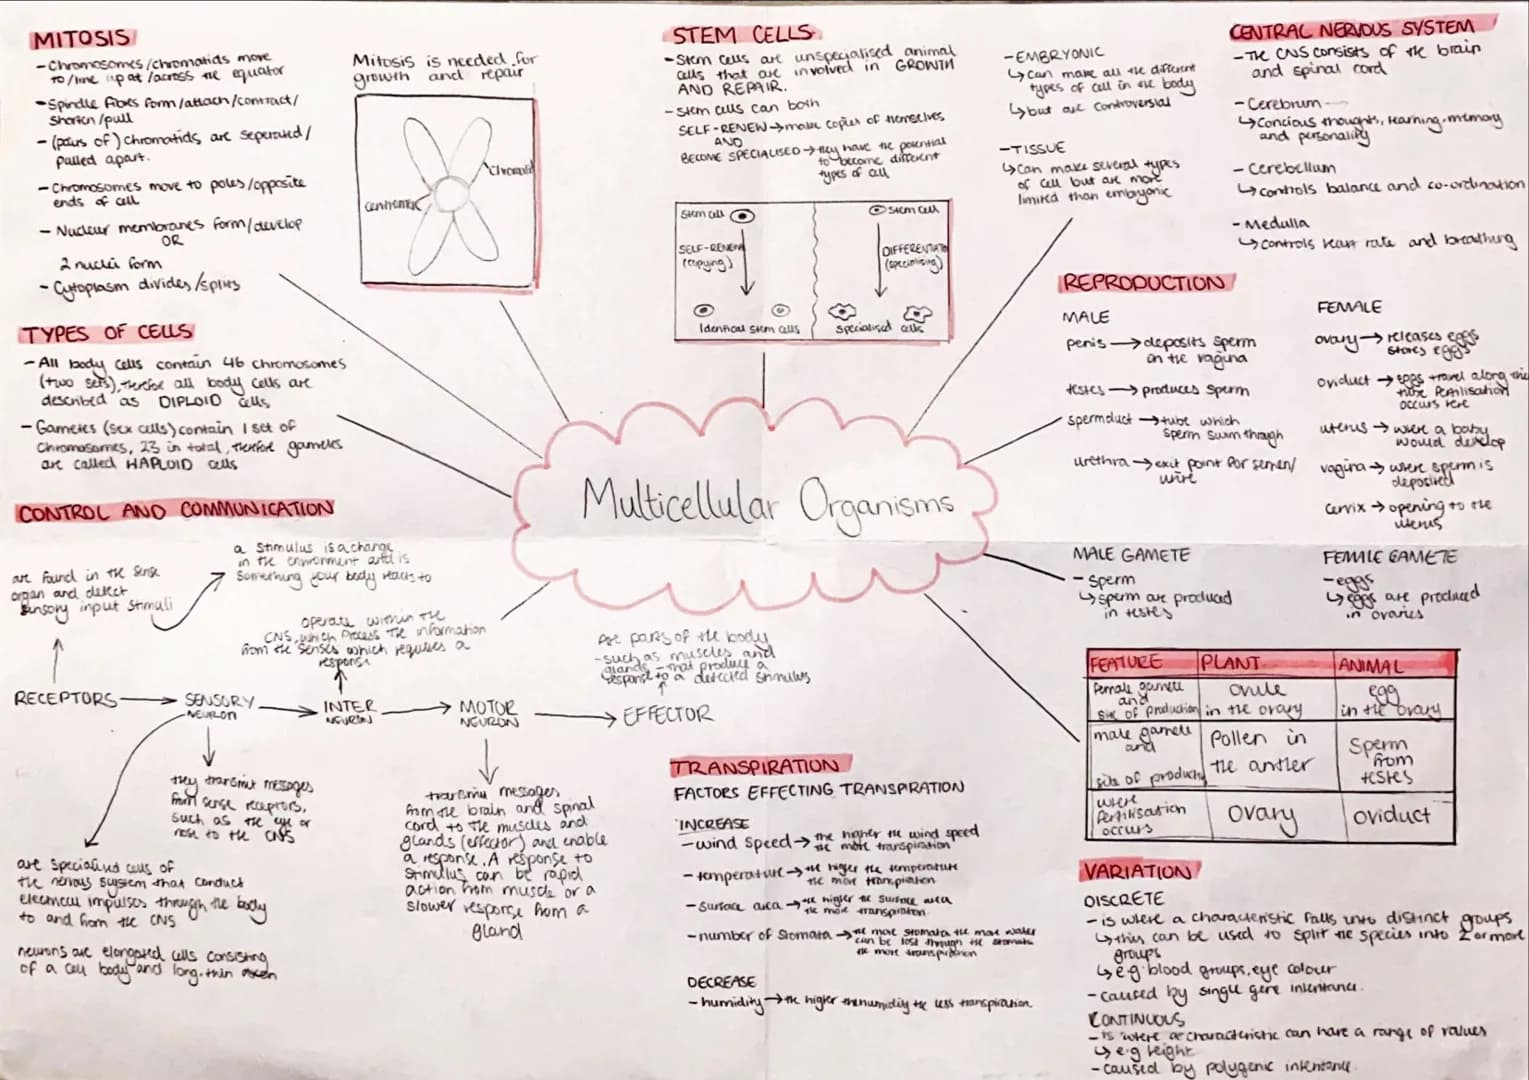 MITOSIS
- Chromosomes/chromatids move
to/line up at/across the equator
- Spindle fibres form/attach/contract/
shorten/pull
- (pairs of) chromatids are seperated/
pulled apart.
- Chromosomes move to poles/opposite
ends of cell
- Nuclear membranes form/develop
OR
2 nuclei form
- Cytoplasm divides/splits
Mitosis is needed for
growth and repair
Chromatid
Centromere
TYPES OF CELLS
- All body cells contain 46 chromosomes
(two sets), therefore all body cells are
described as DIPLOID cells
- Gametes (sex cells) contain 1 set of
chromosomes, 23 in total, therefore gametes
are called HAPLOID cells
STEM CELLS
- Stem cells are unspecialised animal
cells that are involved in GROWTH
AND REPAIR.
- Stem cells can both
SELF-RENEW → make copies of themselves
AND
BECOME SPECIALISED → they have the potential
to become different
types of cell
Stem cell
SELF-RENEW
(copying)
Identical stem cells
Stem cell
DIFFERENTIATE
(specialising)
Specialised cells
- EMBRYONIC
↳ Can make all the different
types of cell in the body
↳ but are controversial
- TISSUE
↳ Can make several types
of cell but are more
limited than embryonic
CENTRAL NERVOUS SYSTEM
- The CNS consists of the brain
and spinal cord
- Cerebrum
↳ Concious thoughts, learning, memory
and personality
- Cerebellum
↳ controls balance and co-ordination
- Medulla
↳ controls heart rate and breathing
REPRODUCTION
MALE
penis → deposits sperm
in the vagina
testes → produces sperm
spermduct → tube which
sperm swim though
urethra → exit point for semen/
urine
FEMALE
ovary → releases eggs
stores eggs
oviduct → eggs travel along this
tube fertilisation
occurs here
uterus → were a baby
would develop
vagina → where sperm is
deposited
Cervix → opening to the
uterus
MALE GAMETE
- Sperm
↳ sperm are produced
in testes
FEMALE GAMETE
- eggs
↳ eggs are produced
in ovaries
Multicellular Organisms
CONTROL AND COMMUNICATION
are found in the sense
organ and detect
sensory input stimuli
a stimulus is a change
in the environment and is
something your body reacts to
operate within the
CNS, which process the information
from the senses which requires a
response
Are parts of the body
- such as muscles and
glands - that produce a
response to a detected stimulus
RECEPTORS → SENSORY NEURON → INTER NEURON → MOTOR NEURON → EFFECTOR
they transmit messages
from sense receptors,
such as the eye or
nose to the CNS
are specialised cells of
the nervous system that conduct
electrical impulses through the body
to and from the CNS
neurons are elongated cells consisting
of a cell body and long, thin axon
transmit messages
from the brain and spinal
cord to the muscles and
glands (effector) and enable
a response. A response to
stimulus can be rapid
action from muscle or a
slower response from a
gland
TRANSPIRATION
FACTORS EFFECTING TRANSPIRATION
INCREASE
- wind speed → the higher the wind speed
the more transpiration
- temperature → the higher the temperature
the more transpiration
- surface area → the higher the surface area
the more transpiration.
- number of stomata → the more stomata the more water
can be lost through the stomata
the more transpiration
DECREASE
- humidity → the higher the humidity the less transpiration.
FEATURE PLANT ANIMAL
female gamete
and
site of production
ovule
in the ovary
egg
in the ovary
male gamete
and
site of product
Pollen in
the antler
Sperm
from
testes
where
fertilisation
occurs
Ovary
oviduct
VARIATION
DISCRETE
- is where a characteristic falls into distinct groups
↳ this can be used to split the species into 2 or more
groups
↳ e.g. blood groups, eye colour
- caused by single gene inheritance.
CONTINUOUS
- is where a characteristic can have a range of values
↳ e.g height
- caused by polygenic inheritance.